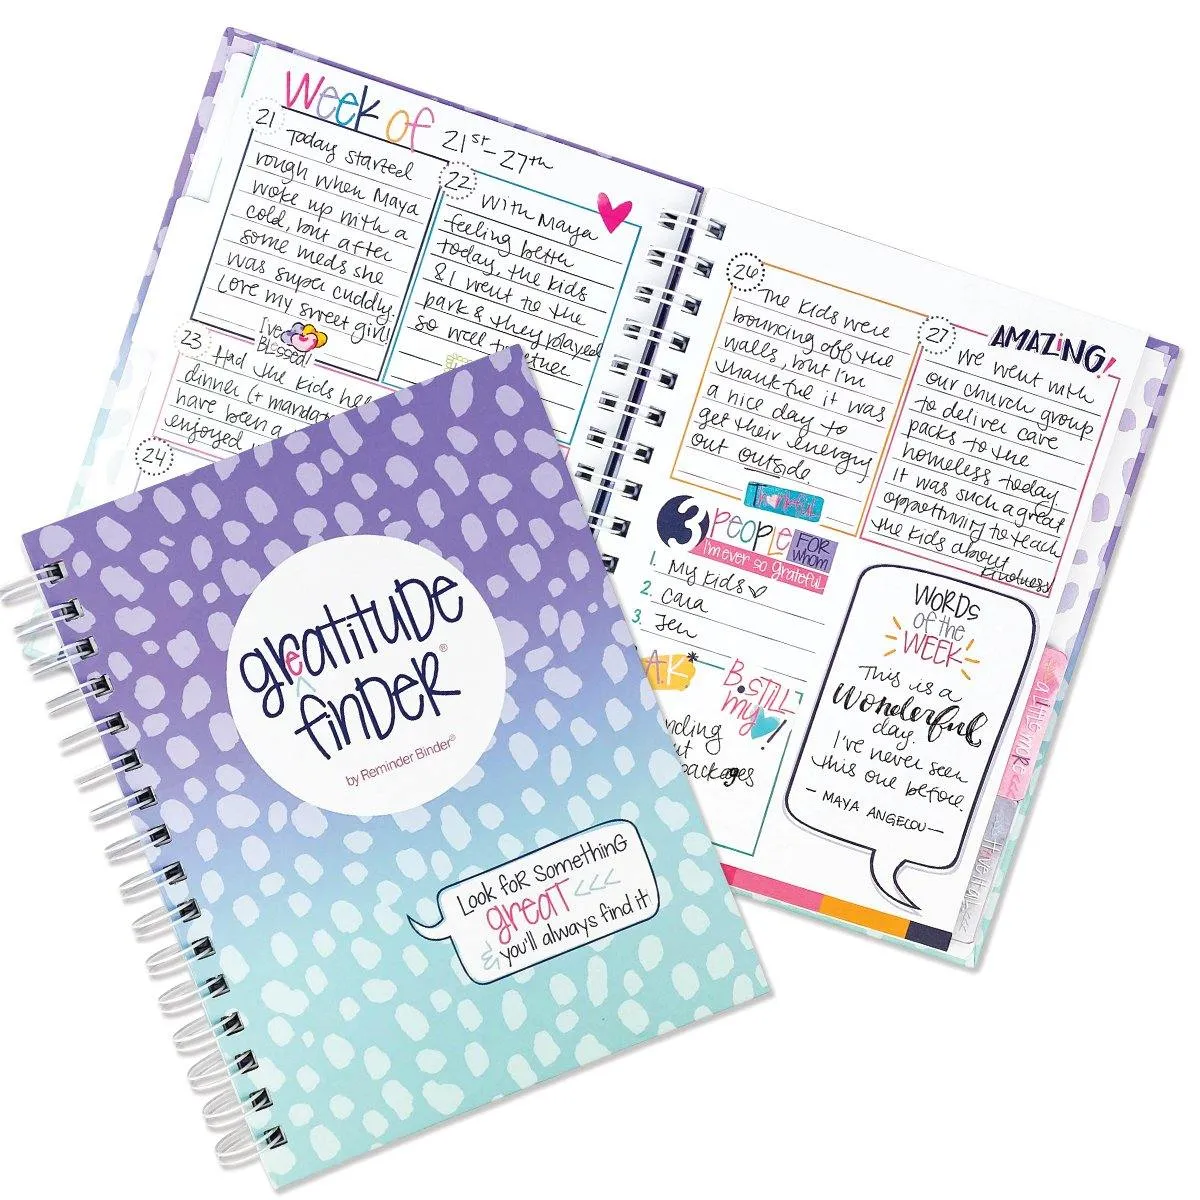 Week of 21st-27th
21
Today started
rough when Maya
woke up with a
cold, but after
some meds she
was super cuddly
Love my sweet girl!
I've
Blessed!
22
With Maya
feeling better
today, the kids
& I went to the
park & they played
so well together
23
Had the kids
dinner (+
have been a
enjoyed
24
26
The kids were
bouncing off the
walls, but I'm
thankful it was
a nice day to
get their energy
out outside
Thankful
27
AMAZiNG!
We went with
our church group
to deliver care
packs to the
homeless today
It was such a great
opportunity to teach
the kids about
kindness
3 PEOPLE FOR whom
I'm ever so grateful
1. My kids
2. Cara
3. Jen
B.STILL
my!
packages
WORDS
of the
WEEK
This is a
Wonderful
day.
I've never seen
this one before.
- MAYA ANGELOU -
a little more <<<
gratitude
finder®
by Reminder Binder®
Look for something
great <<<
& you'll always find it!